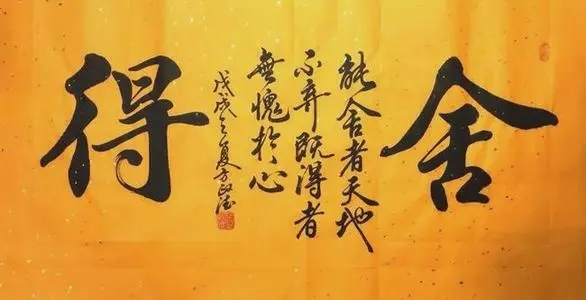 舍
能舍者天地
不弃既得者
無愧於心
戊戌之夏方
得